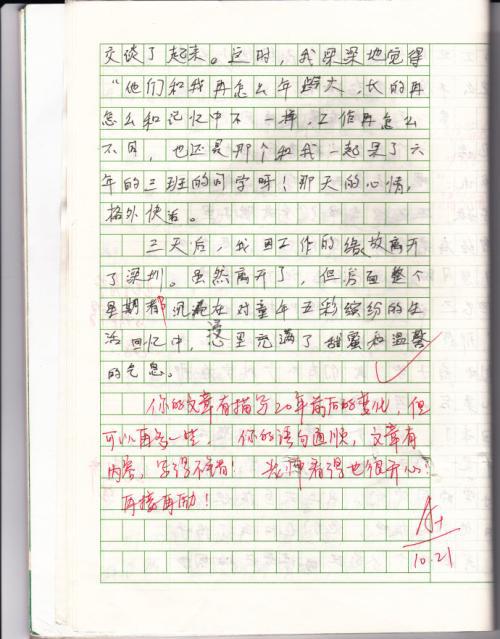 交谈了起来。这时，我深深地觉得
“他们和我再怎么年龄大，长的再
怎么和记忆中不一样，工作再怎么
不同，也还是那个和我一起呆了六
年的三班的同学呀！那天的心情，
格外快活。
三天后，我因工作的缘故离开
了深圳。虽然离开了，但后面整个
星期都沉浸在对童年五彩缤纷的生
活回忆中，心里充满了甜蜜和温馨
的气息。
你的文章有描写20年前后的变化，但
可以再多一些， 你的语句通顺，文章有
内容，写得不错！ 老师看得也很开心！
再接再励！
A+
10.21